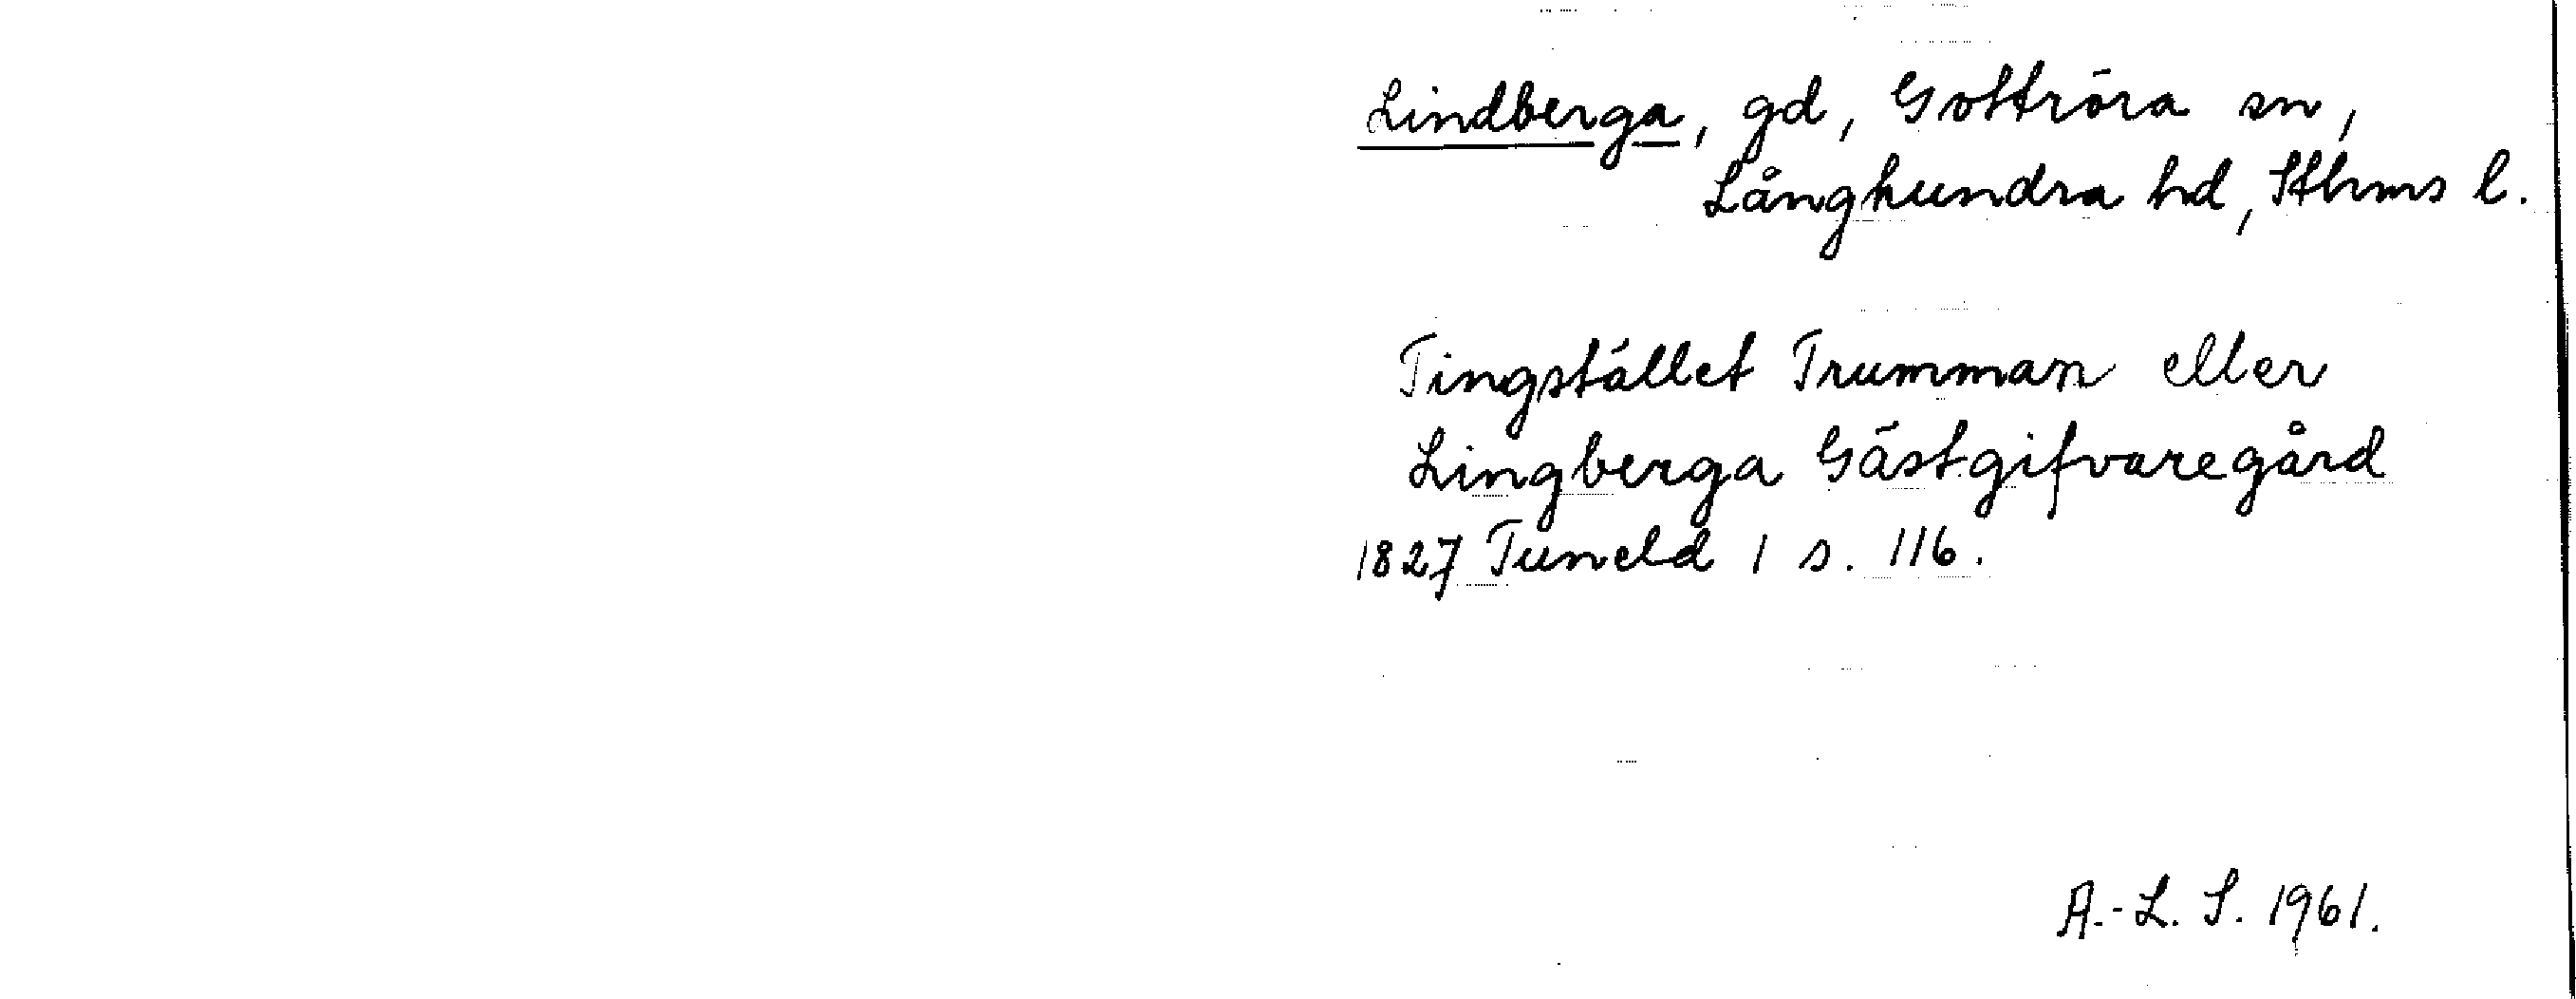 Lindberga, gd, Gottröra sn,
Långhundra hd, Sthms l.
Tingstället Trumman eller
Lingberga Gästgifvaregård
1827 Tuneld 1 s. 116.
A.-L. S. 1961.